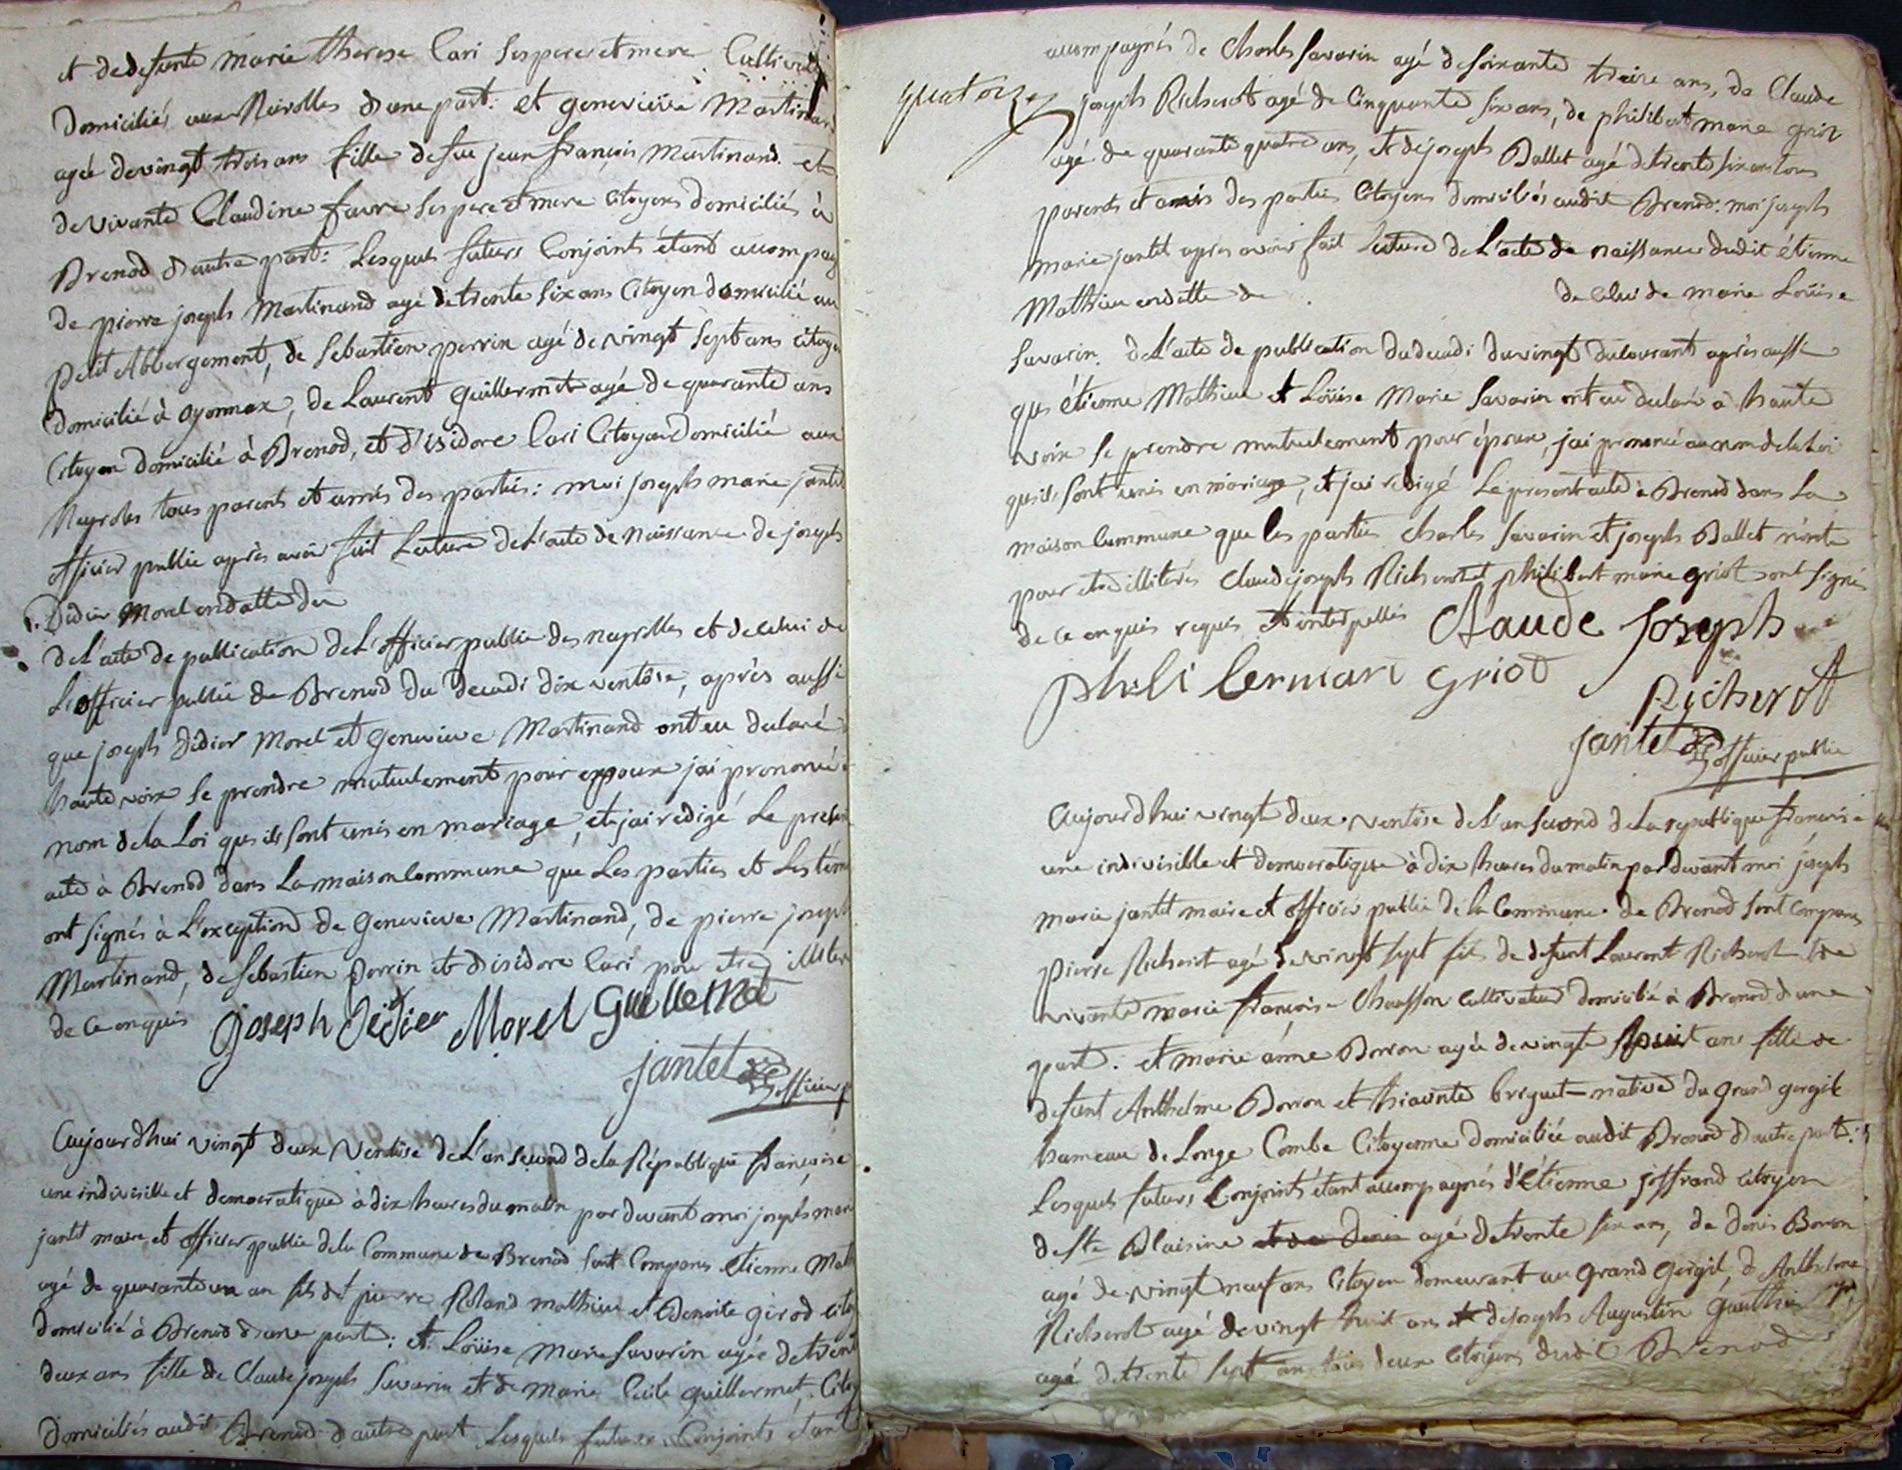 et de defunte marie therese Cari ses pere et mere Cultivat
Domiciliés aux Neirolles d'une part: et genevieve Martinan
agée de vingt trois ans fille de feu jean françois Martinand et
de vivante Claudine favre ses pere et mere Citoyens domiciliés à
Brenod d'autre part: Lesquels futurs Conjoints étant accompag
de pierre joseph Martinand agé de trente six ans Citoyen domicilié au
petit Abbergement, de Sebastien perrin agé de vingt sept ans citoyen
domicilié à oyonnax, de Laurent Guillermet agé de quarante ans
Citoyen domicilié à Brenod, et d'isidore Cari Citoyen domicilié aux
Neyroles tous parents et amis des parties: moi joseph marie jantet
officier public après avoir fait Lecture de L'acte de Naissance de joseph
Didier Morel en datte du
de L'acte de publication de L'officier public des neyrolles et de celui de
L'officier public de Brenod du decadi dix ventôse, après aussi
que joseph Didier Morel et genevieve Martinand ont eu declaré
haute voix se prendre mutuelement pour epoux jai prononcé
nom de la Loi qu'ils sont unis en mariage, et jai redigé Le present
acte à Brenod dans La maison Commune que Les parties et Les témo
ont signés à L'exception de Genevieve Martinand, de pierre joseph
Martinand, de Sebastien perrin et d'isidore Cari pour etre illiter
de ce enquis joseph Didier Morel Guillermet
jantet officier p
Aujourdhui vingt deux ventôse de L'an second de la République françoise
une indivisible et democratique à dix heures du matin par devant moi joseph marie
jantet maire et officier public de la Commune de Brenod sont Comparus etienne Math
agé de quarante un an fils de pierre Roland mathieu et Benoite girod citoy
domicilié à Brenod d'une part: et Loüise Marie Savarin agée de trente
deux ans fille de Claude joseph Savarin et de marie Cecile guillermet, Citoy
Domiciliés audit Brenod d'autre part Lesquels futurs Conjoints étant
accompagnés de Charles Savarin agé de soixante treize ans, de Claude
quatorze
joseph Richerot agé de Cinquante six ans, de philibert marie griot
agé de quarante quatre ans, et de joseph Ballet agé de trente six ans tous
parents et amis des parties Citoyens domiciliés audit Brenod. moi joseph
marie jantet apres avoir fait Lecture de L'acte de naissance dudit étienne
Mathieu en datte de de Celui de marie Loüise
Savarin. de L'acte de publication du decadi du vingt du courant après aussi
que étienne Mathieu et Loüise Marie Savarin ont eu declaré à haute
voix se prendre mutuelement pour époux, j'ai prononcé au nom de la Loi
qu'ils sont unis en mariage, et j'ai redigé Le present acte à Brenod dans La
maison Commune que les parties Charles Savarin et joseph Ballet n'ont
pour etre illiterés Claude joseph Richerot et philibert marie griot ont signés
de ce enquis requis et interpellés Claude Joseph
phili bermari griot
Richerot
jantet officier public
Aujourdhui vingt deux ventôse de L'an second de la republique françoise
une indivisible et democratique à dix heures du matin par devant moi joseph
marie jantet maire et officier public de la Commune de Brenod sont Comparus
pierre Richerot agé de vingt sept fils de defunt Laurent Richerot et de
vivante marie françoise Chausson Cultivateur domicilié à Brenod d'une
part: et marie anne Borron agée de vingt huit ans fille de
defunt Anthelme Borron et hiacinte briguet native du Grand gergil
hameau de Longe Combe Citoyenne domiciliée audit Brenod d'autre part:
Lesquels futurs Conjoints étant accompagnés d'étienne joffrand citoyen
de Ste Blaisine et de Denis agé de trente six ans, de denis Boron
agé de vingt neuf ans Citoyen demeurant au grand Gergil, d'Anthelme
Richerot agé de vingt huit ans et de joseph Augustin Gauthier
agé de trente sept ans tous deux citoyens dudit Brenod